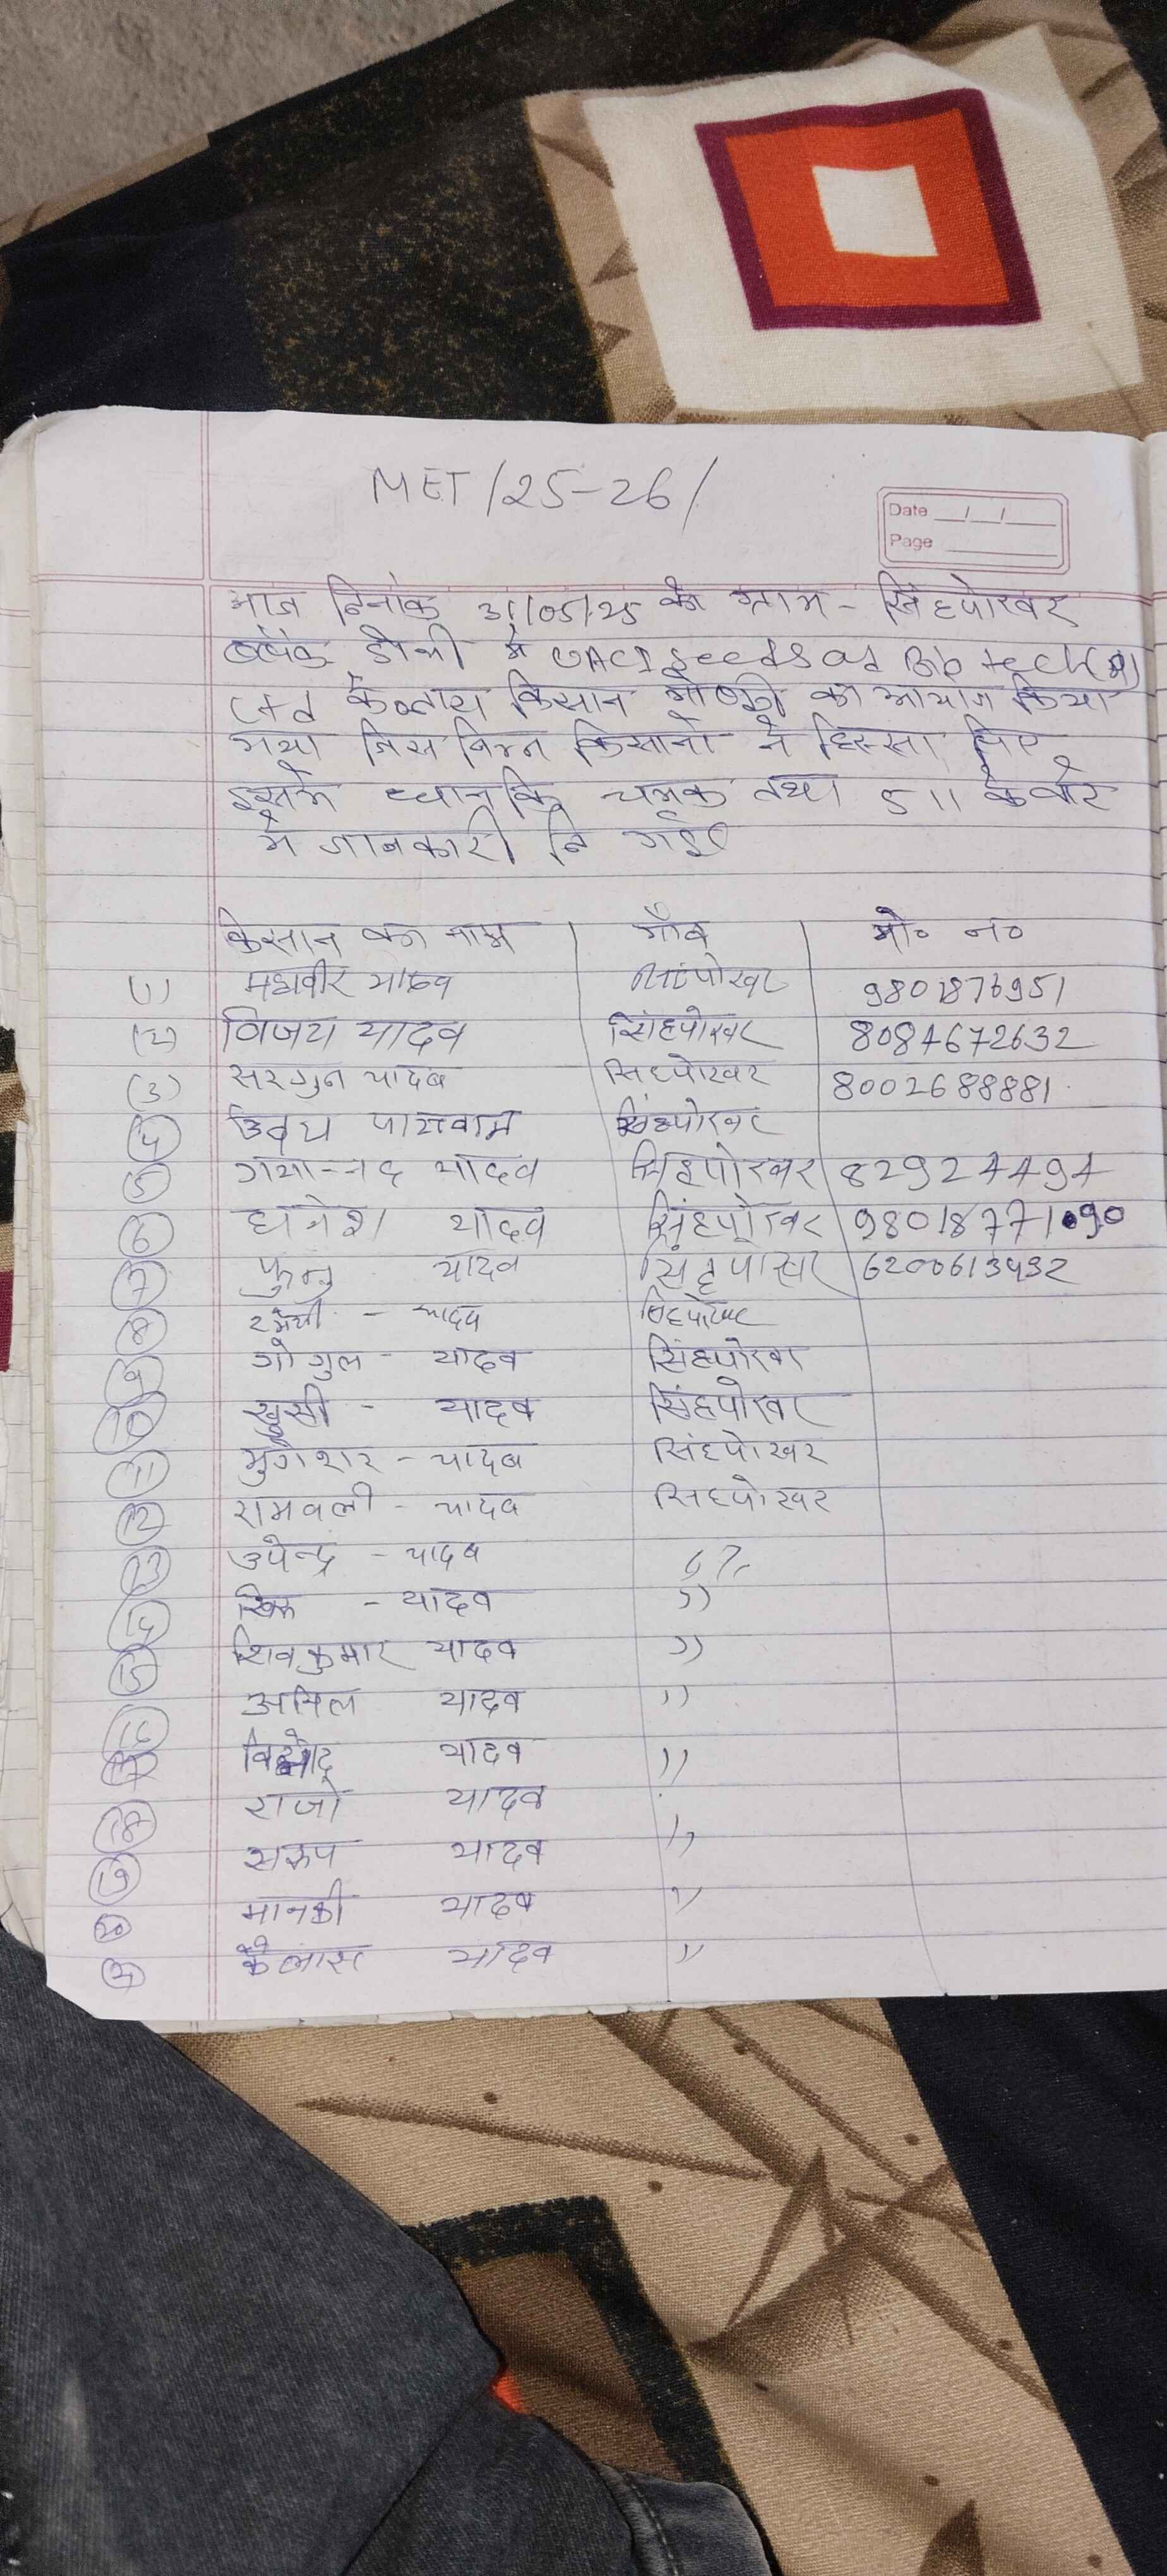 MET/25-26/
Date __/__/__
Page
आज दिनांक 31/05/25 को ग्राम - सिंहपोखर
डोभी में seeds Bio tech
Ltd के किसान गोष्ठी का किया
गया जिस निम्न किसानो ने हिस्सा लिए
इसमे धान कि चमक तथा 511 के बारे
मे जानकारी दि गई
किसान का नाम गाँव मो० न०
(1) महावीर यादव सिंहपोखर 9801876951
(2) विजय यादव सिंहपोखर 8084672632
(3) सरगुन यादव सिंहपोखर 8002688881
(4) उदय पासवान सिंहपोखर
(5) यादव सिंहपोखर 82924494
(6) धनेश यादव सिंहपोखर 9801877190
(7) फुनु यादव सिंहपोखर 6200613432
(8) यादव सिंहपोखर
(9) गोगुल - यादव सिंहपोखर
(10) खुसी - यादव सिंहपोखर
(11) मुगेशर - यादव सिंहपोखर
(12) रामवली - यादव सिंहपोखर
(13) उपेन्द्र - यादव ,,
(14) - यादव ,,
(15) शिवकुमार यादव ,,
(16) अनिल यादव ,,
(17) यादव ,,
(18) राजो यादव ,,
(19) सरुप यादव
(20) मानकी यादव ,,
(21) कैलास यादव ,,